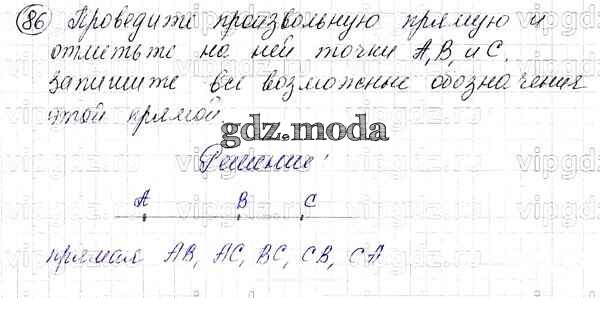 86 Проведите произвольную прямую и
отметьте на ней точки A, B, и C.
Запишите все возможные обозначения
этой прямой.
gdz.moda
Решение:
A B C
прямая AB, AC, BC, CB, CA